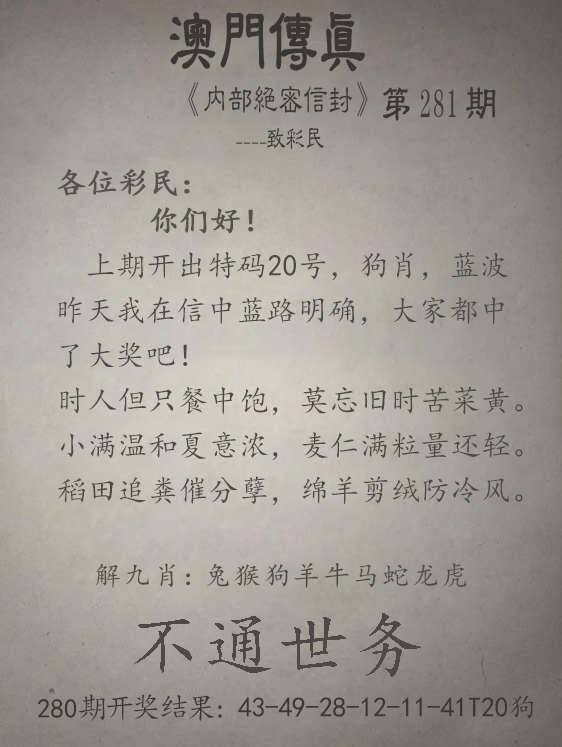 澳門傳眞
《内部絕密信封》第281期
----致彩民
各位彩民：
你们好！
上期开出特码20号，狗肖，蓝波
昨天我在信中蓝路明确，大家都中
了大奖吧！
时人但只餐中饱，莫忘旧时苦菜黄。
小满温和夏意浓，麦仁满粒量还轻。
稻田追粪催分孽，绵羊剪绒防冷风。
解九肖：兔猴狗羊牛马蛇龙虎
不通世务
280期开奖结果：43-49-28-12-11-41T20狗